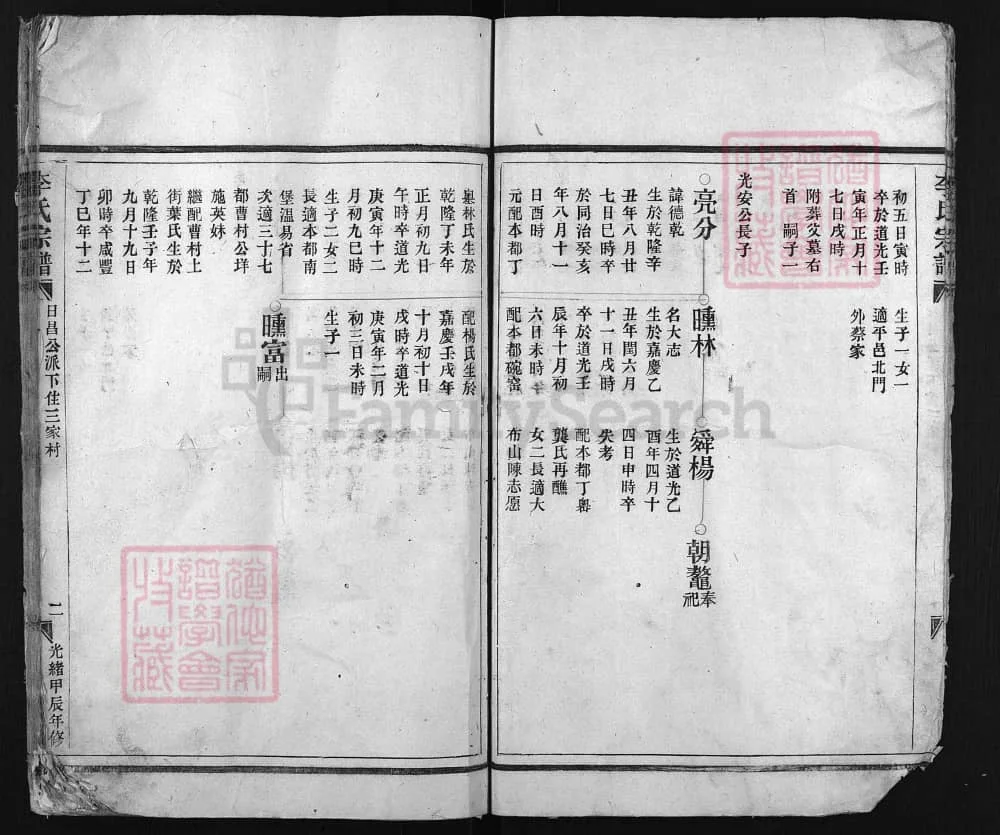 李氏宗譜
初五日寅時
卒於道光壬
寅年正月十
七日戌時
附葬艾墓右
首 嗣子一
生子一女一
適平邑北門
外蔡家
光安公長子
亮分
諱德乾
生於乾隆辛
丑年八月廿
七日巳時卒
於同治癸亥
年八月十一
日酉時
元配本都丁
㬢林
名大志
生於嘉慶乙
丑年閏六月
十一日戌時
卒於道光壬
辰年十月初
六日未時
配本都碗窰
舜楊
生於道光乙
酉年四月十
四日申時卒
失考
配本都丁
龔氏再醮
女二長適大
布山陳志愿
朝鰲奉祀
林氏生於
乾隆丁未年
正月初九日
午時卒道光
庚寅年十二
月初九巳時
生子二女二
長適本都南
堡溫易省
次適三十七
都曹村公垟
施英妹
繼配曹村上
街葉氏生於
乾隆壬子年
九月十九日
卯時卒咸豐
丁巳年十二
配楊氏生於
嘉慶壬戌年
十月初十日
戌時卒道光
庚寅年二月
初三日未時
生子一
㬢富出嗣
李氏宗譜
日昌公派下住三家村
二
光緒甲辰年修
FamilySearch
譜學會
特藏
譜學會
特藏